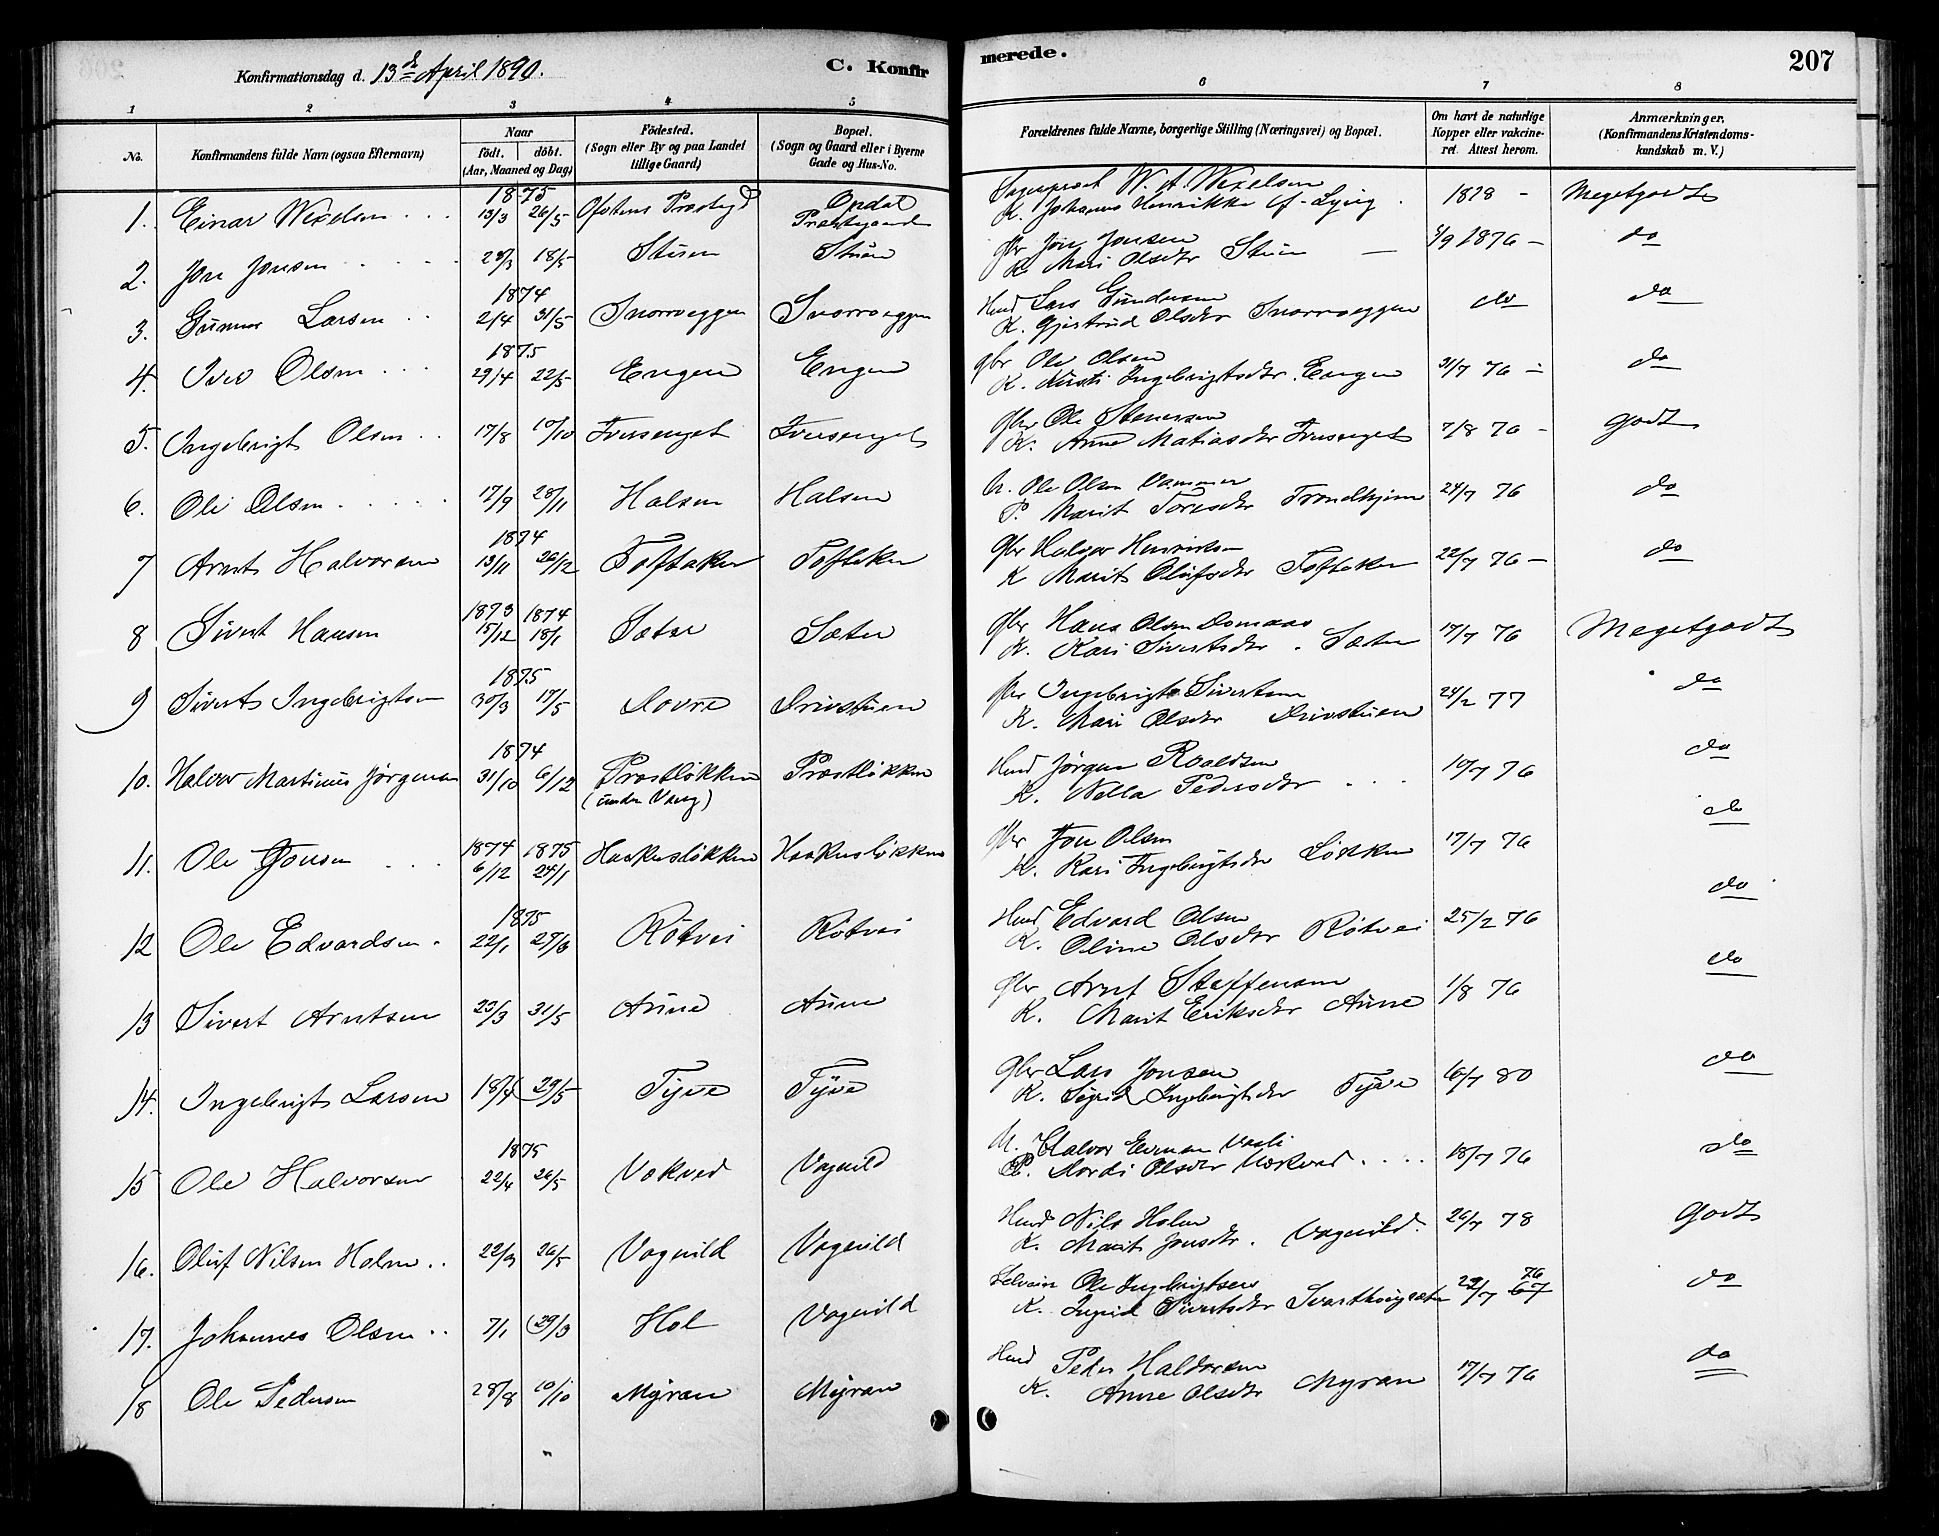 Konfirmationsdag d. 13de April 1890. C. Konfir
merede. 207
1 2 3 4 5 6 7 8
No. Konfirmandens fulde Navn (ogsaa Efternavn)
Naar
født. døbt.
(Aar, Maaned og Dag)
Födested.
(Sogn eller By og paa Landet
tillige Gaard)
Bopæl.
(Sogn og Gaard eller i Byerne
Gade og Hus-No.
Forældrenes fulde Navne, borgerlige Stilling (Næringsvei) og Bopæl.
Om havt de naturlige
Kopper eller vakcine-
ret. Attest herom.
Anmærkninger.
(Konfirmandens Kristendoms-
kundskab m. V.)
1875
1. Einar Wexelsen 13/3 26/5 Ofotens Præstegd Opdal
Præstegaard
Sogneprest W. A. Wexelsen
K. Johanne Henrikke 1878 - Megetgodt
2. Jon Jonsen 18/5 Stuen Stuen
Gbr Jon Jonsen
K. Mari Olsdtr Stuen 1876 - do
1874
3. Gunnar Larsen 2/4 31/5 Snorroeggen Snorroeggen
Husmd Lars Gundersen
K. Gjertrud Olsdtr Snorroeggen do do
1875
4. Iver Olsen 29/4 22/5 Engen Engen
gbr Ole Olsen
K. Kirsti Ingebrigtsdtr. Engen 31/7 76 - do
5. Ingebrigt Olsen 17/8 10/10 Iversenget Iversenget
Gbr Ole Stenersen
K. Anne Matiasdtr Iversenget 7/8 76 - godt
6. Ole Olsen 17/9 28/11 Halsen Halsen
U. Ole Olsen Vammer
P. Marit Toresdtr Trondhjem 24/7 76 do
1874
7 Arnt Halvorsen 13/11 26/12 Toftaker Toftaker
Gbr Halvor Henriksen
K Marit Olufsdtr Toftaker 22/7 76 - do
1873 1874
8 Sivert Hansen 15/12 18/1 Sæter Sæter
Gbr Hans Olsen Domaas
K. Kari Sivertsdtr. Sæter 17/7 76 Megetgodt
1875
9 Sivert Ingebrigtsen 30/3 17/5 Dovre Drivstuen
Gbr Ingebrigt Sivertsen
K. Mari Olsdtr Drivstuen 24/2 77 do
1874
10. Halvor Martinus Jørgensen 31/10 6/12 Præstløkken Præstløkken
(under Vang)
Husmd Jørgen Roaldsen
K. Nella Pedersdtr 10/7 76 do
1874 1875
11. Ole Jonsen 6/12 24/1 Haakusløkken Haakusløkken
Gbr Jon Olsen
K. Kari Ingebrigtsdtr Løkken 17/7 76 do
1875
12 Ole Edvardsen 22/1 Røtvei Røtvei
Husmd Edvard Olsen
K. Oline Olsdtr Røtvei 25/2 76 do
13 Sivert Arntsen 23/3 31/5 Aune Aune
Gbr Arnt Steffensen
K. Marit Eriksdtr Aune 1/8 76 do
14. Ingebrigt Larsen 29/5 Tyve Tyve
Gbr Lars Jonsen
K. Sigrid Ingebrigtsdtr Tyve 6/7 80 do
1875
15 Ole Halvorsen 22/4 26/5 Vokved Vognild
U. Halvor Vasli
P. Dordi Olsdtr 18/7 76 do
16. Oluf Nilsen Holm 26/5 Vognild Vognild
Husmd Nils Holm
K. Marit Jonsdtr. Vognild. 26/7 78 Godt
17. Johannes Olsen 7/1 29/3 Hol Vognild
Selveier Ole Ingebrigtsen
K. Ingrid Sivertsdtr 29/7 76 67 do
18 Ole Pedersen 28/8 10/10 Myran Myran
Husmd Peder Haldorsen
K. Anne Olsdtr Myran 17/7 76 do